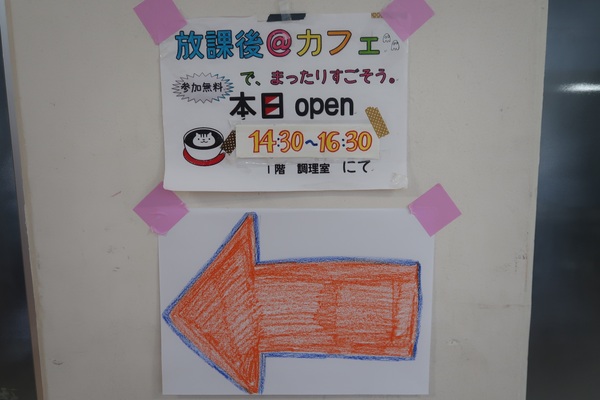 放課後@カフェ
で、まったりすごそう。
参加無料
本日 open
14:30~16:30
1階 調理室 にて